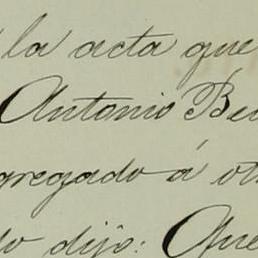 la acta que
Antonio Be
gregado á ot
do dijo: Que